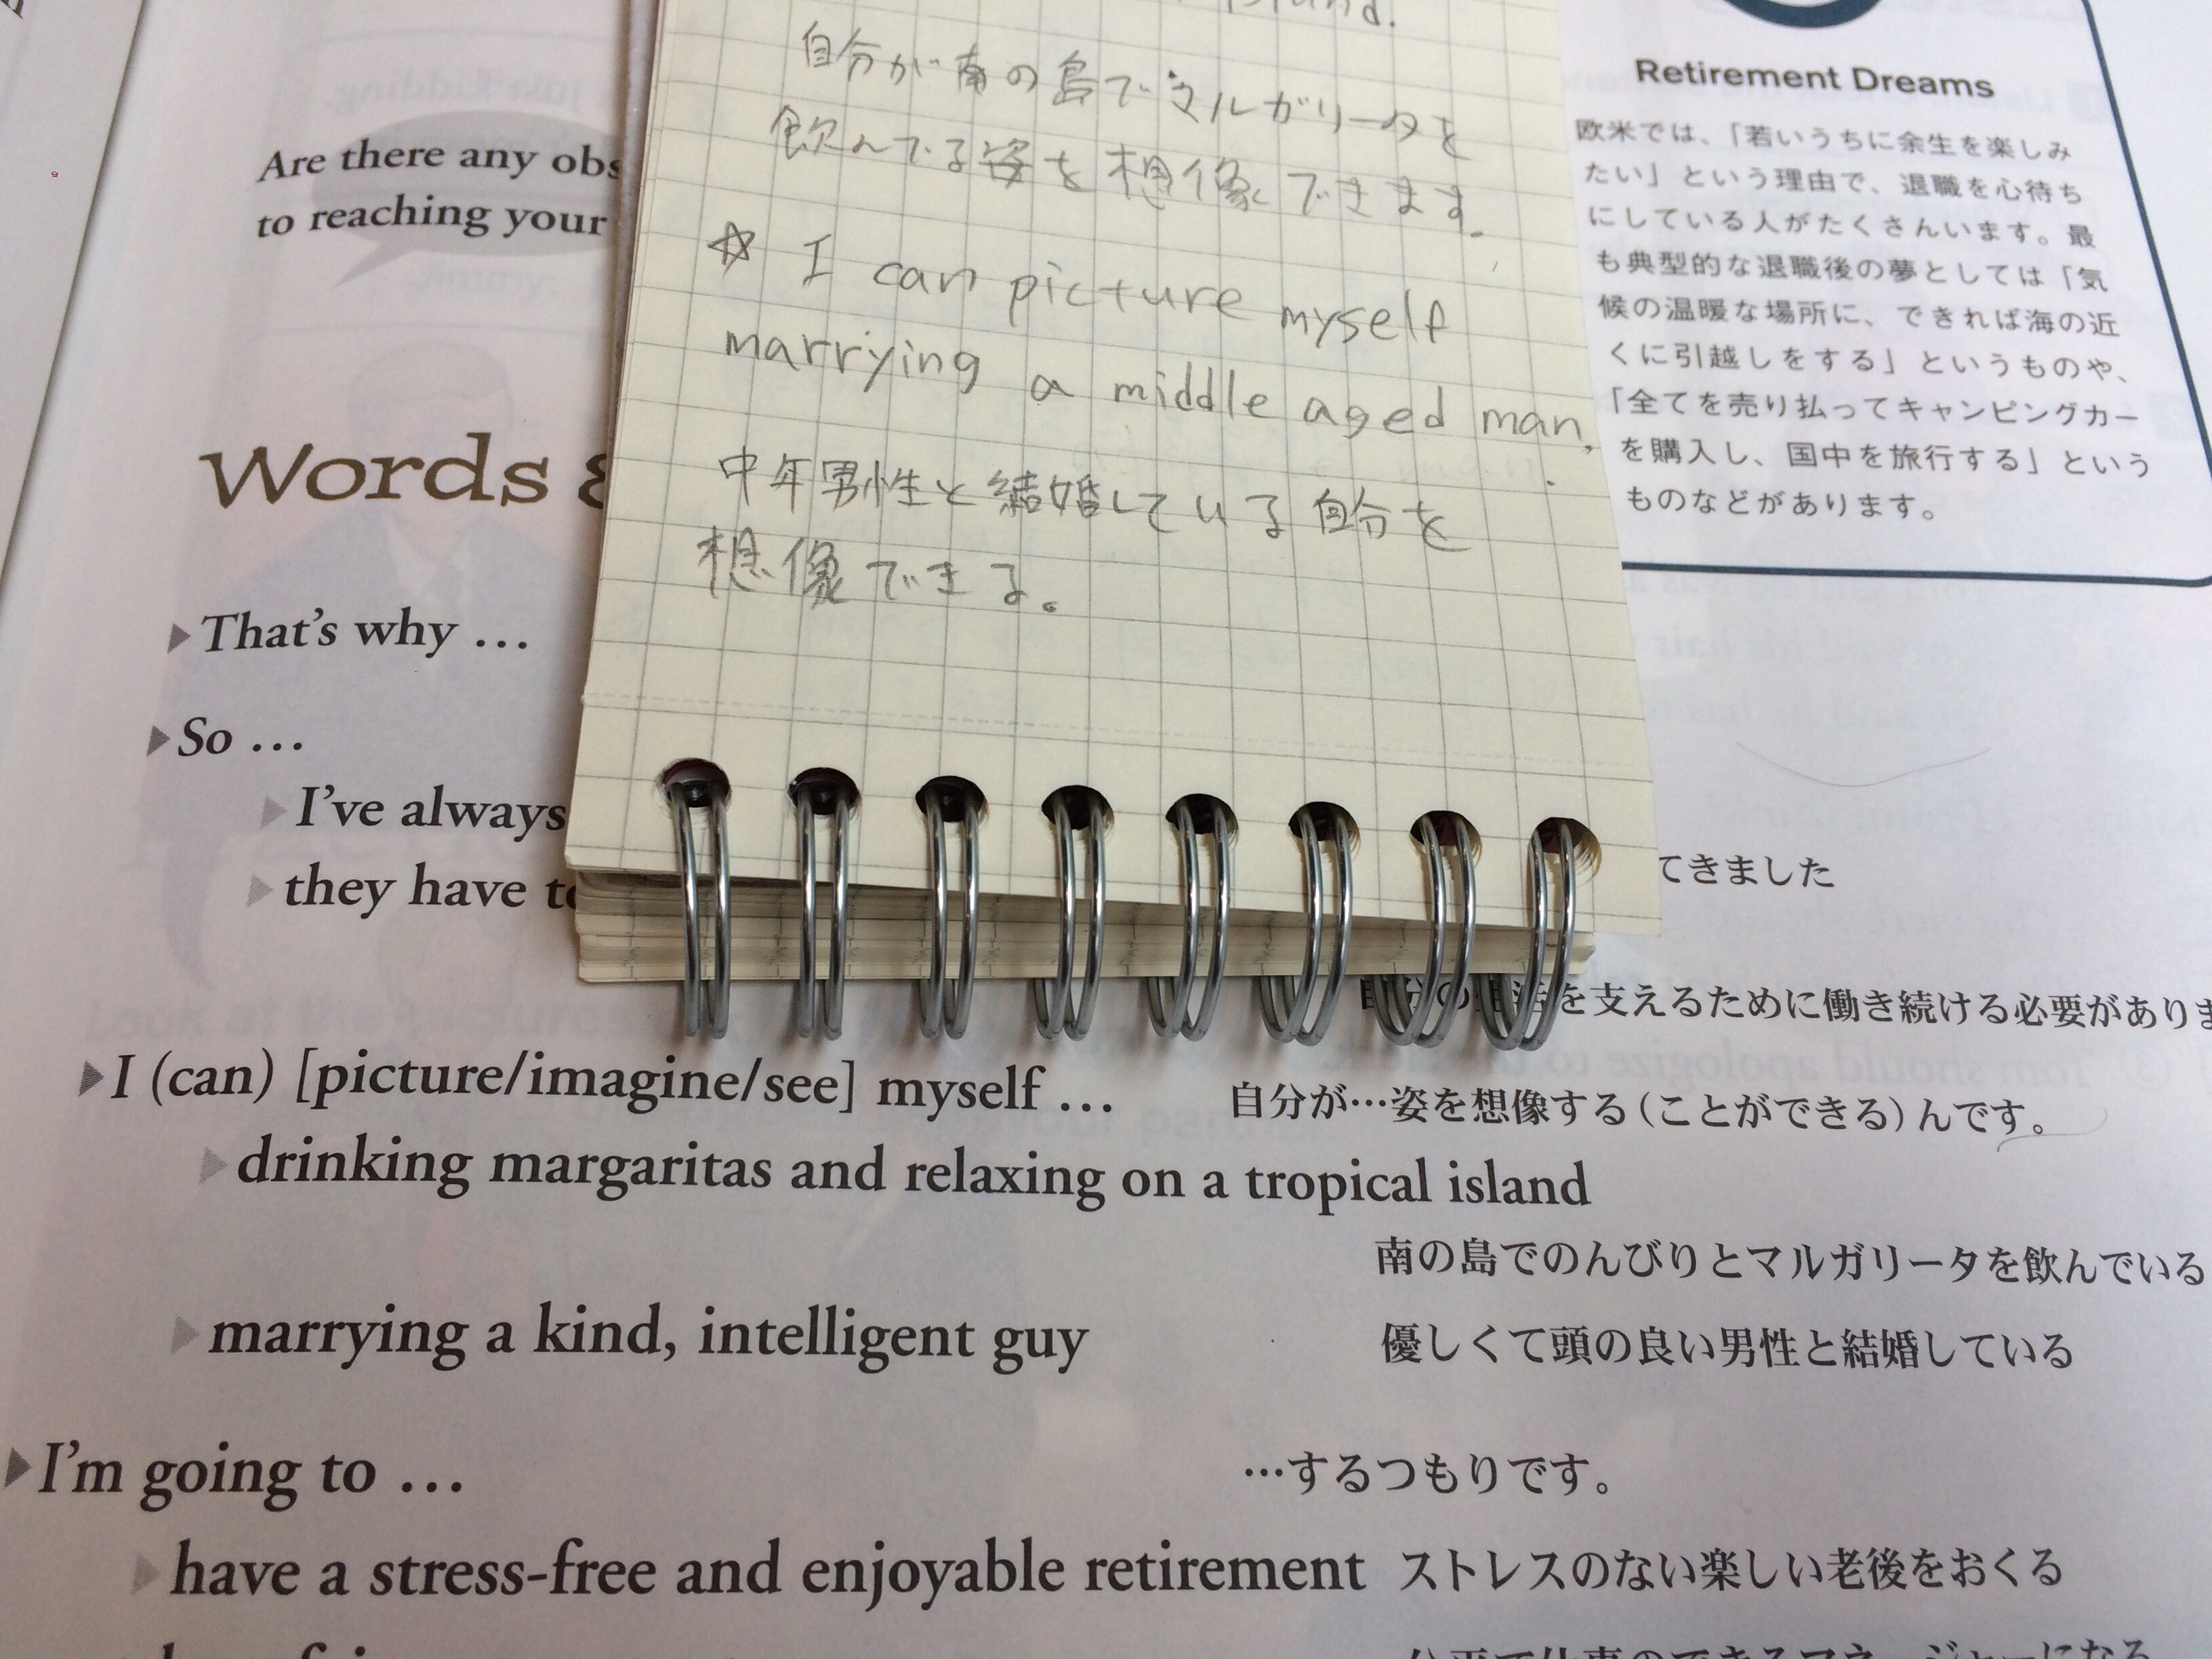 Are there any
to reaching your
Words
That's why …
So …
I've always
they have
island.
自分が南の島でマルガリータを
飲んでる姿を想像できます。
☆ I can picture myself
marrying a middle aged man.
中年男性と結婚している自分を
想像できる。
Retirement Dreams
欧米では、「若いうちに余生を楽しみ
たい」という理由で、退職を心待ち
にしている人がたくさんいます。最
も典型的な退職後の夢としては「気
候の温暖な場所に、できれば海の近
くに引越しをする」というものや、
「全てを売り払ってキャンピングカー
を購入し、国中を旅行する」という
ものなどがあります。
てきました
を支えるために働き続ける必要がありま
I (can) [picture/imagine/see] myself …
自分が…姿を想像する(ことができる)んです。
drinking margaritas and relaxing on a tropical island
南の島でのんびりとマルガリータを飲んでいる
marrying a kind, intelligent guy
優しくて頭の良い男性と結婚している
I'm going to …
…するつもりです。
have a stress-free and enjoyable retirement
ストレスのない楽しい老後をおくる